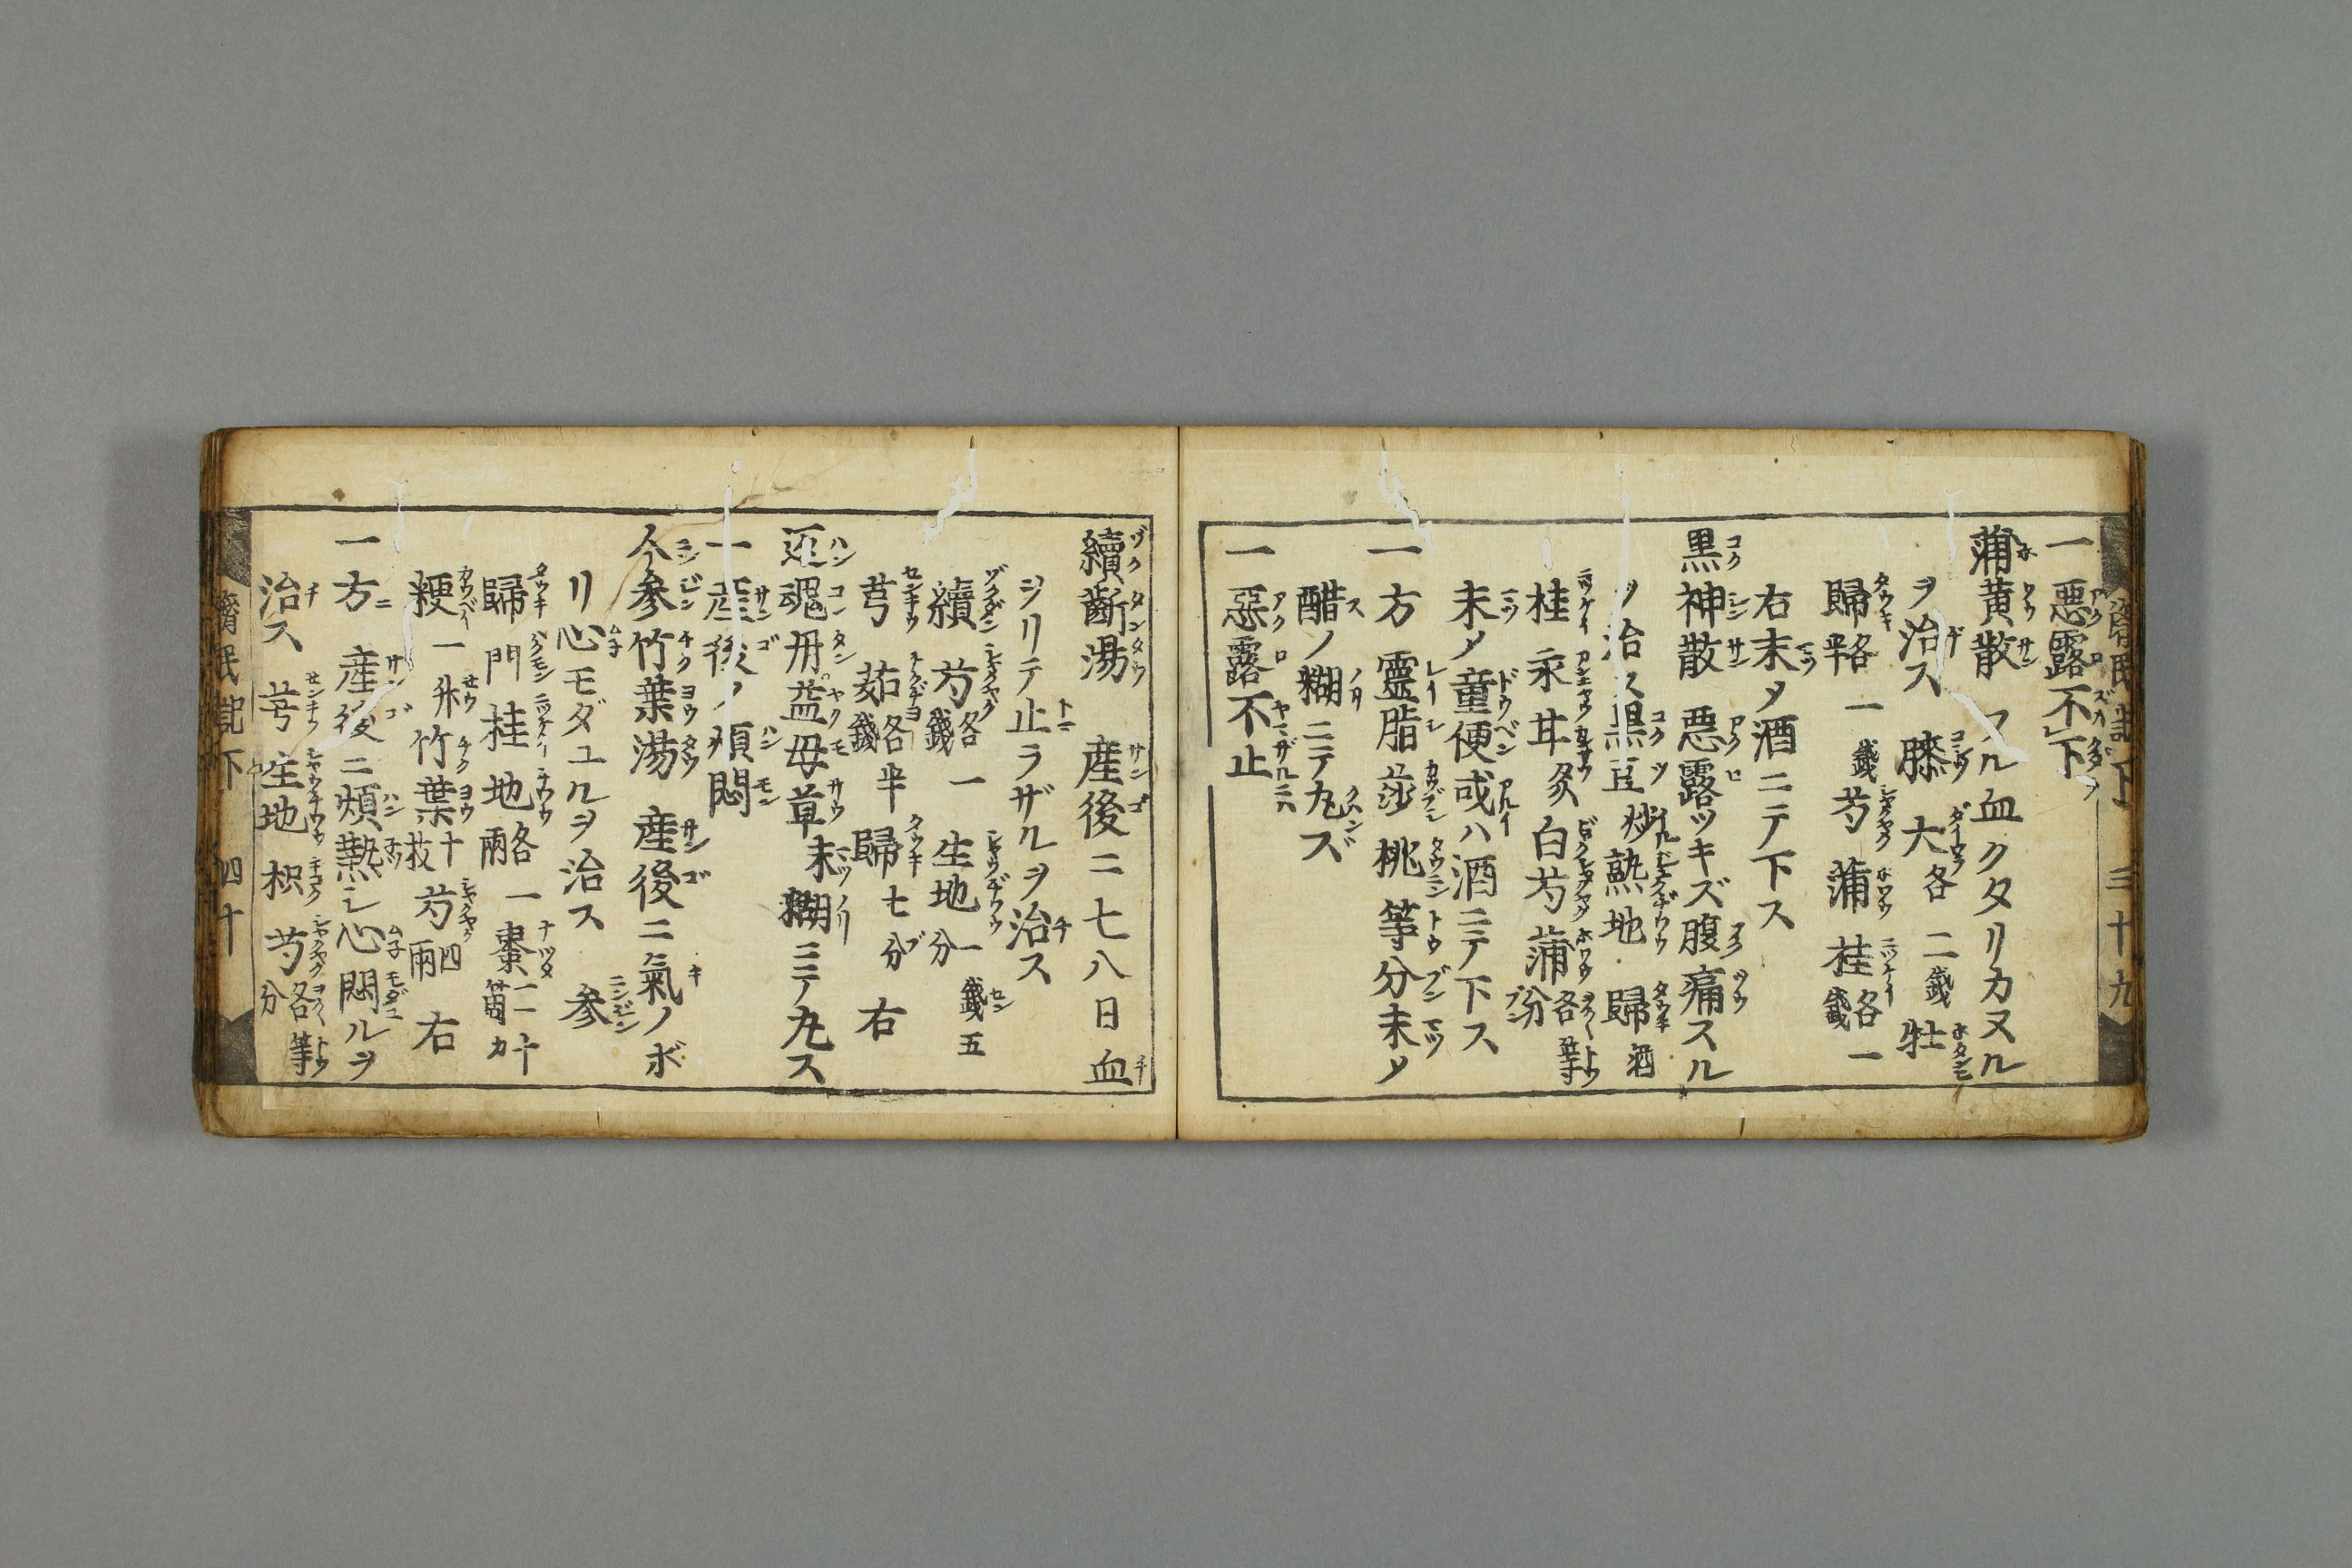 濟民記下 三十九
一惡露不下
蒲黄散 フル血クタリカヌル
ヲ治ス 膝 大各二戔 牡
歸各半 一戔 芍 蒲 桂各一戔
右末メ酒ニテ下ス
黒神散 惡露ツキズ腹痛スル
ヲ治ス 黒豆炒 熟地 歸酒
桂 永 甘炙 白芍 蒲各等分
末メ童便或ハ酒ニテ下ス
一方 靈脂 莎 桃 等分末メ
醋ノ糊ニテ丸ズ
一 惡露不止
續斷湯 産後ニ七八日血
シリテ止ラザルヲ治ス
續 芍各一戔 生地一分 戔五
芎 茹各半戔 歸七分 右
還魂丹 益母草末糊ニテ丸ス
一産後ノ煩悶
人參竹葉湯 産後ニ氣ノボ
リ心モダユルヲ治ス 參
歸 門 桂 地各一兩 棗二十箇カ
粳一升 竹葉十枚 芍四兩 右
一方 産後ニ煩熱シ心悶ルヲ
治ス 芎 生地 枳 芍各等分
濟民記下 四十